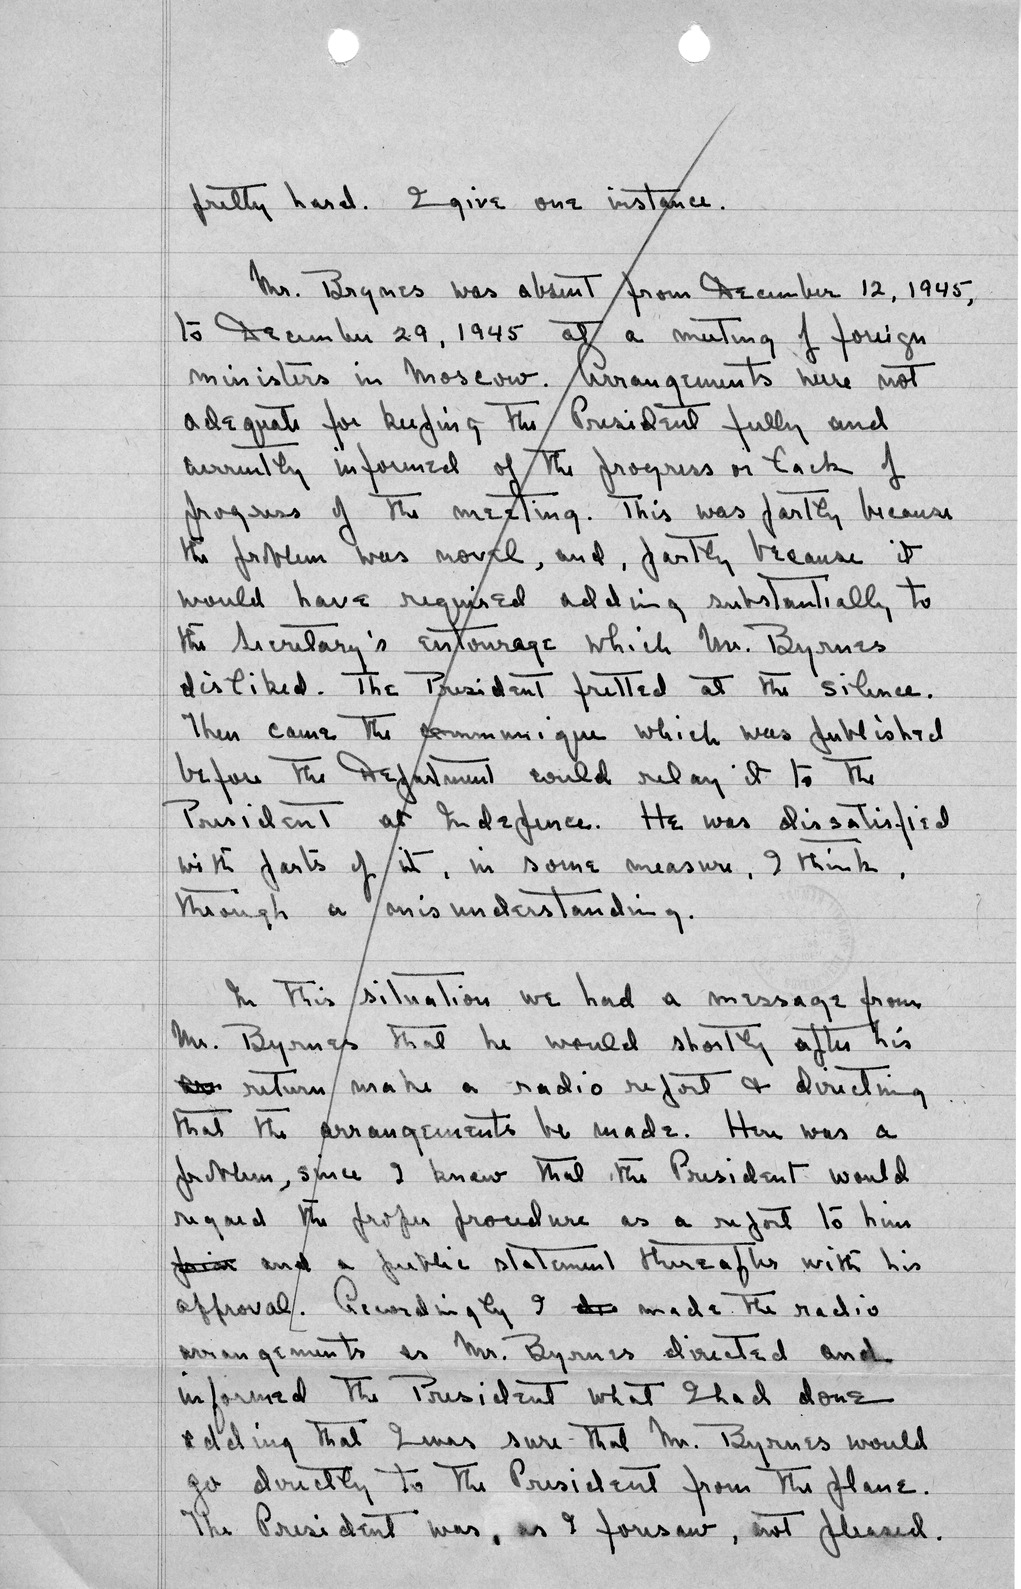 pretty hard. I give one instance.
Mr. Brynes was absent from December 12, 1945,
to December 29, 1945 at a meeting of foreign
ministers in Moscow. Arrangements were not
adequate for keeping the President fully and
currently informed of the progress or lack of
progress of the meeting. This was partly because
the problem was novel, and, partly because it
would have required adding substantially to
the Secretary's entourage which Mr. Byrnes
disliked. The President fretted at the silence.
Then came the communique which was published
before the Department could relay it to the
President at Indepence. He was dissatisfied
with parts of it, in some measure, I think,
through a misunderstanding.
In this situation we had a message from
Mr. Byrnes that he would shortly after his
return make a radio report & directing
that the arrangements be made. Here was a
problem, since I knew that the President would
regard the proper procedure as a report to him
and a public statement thereafter with his
approval. Accordingly I made the radio
arrangements as Mr. Byrnes directed and
informed the President what I had done
adding that I was sure that Mr. Byrnes would
go directly to the President from the plane.
The President was, as I foresaw, not pleased.